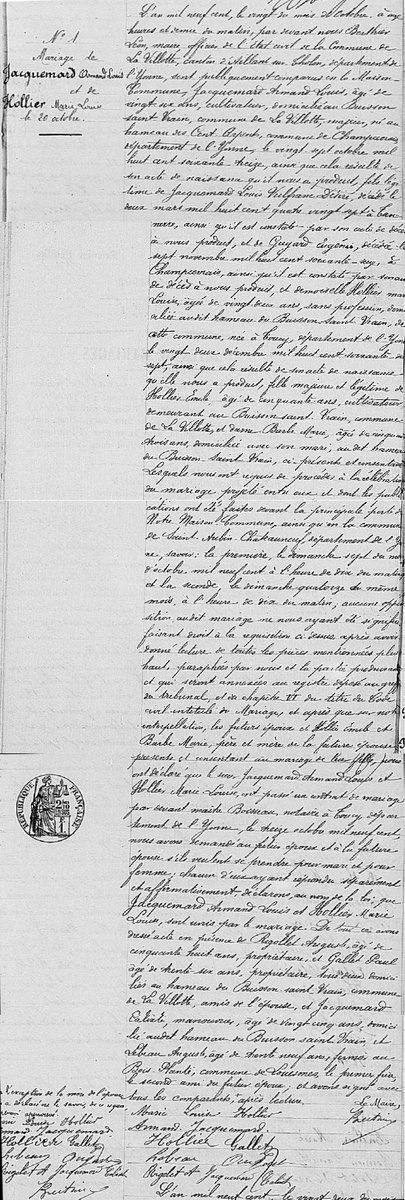 N° 1
Mariage de
Jacquemard Armand Louis
et de
Hollier Marie Louise
le 20 octobre
L'an mil neuf cent, le vingt du mois d'octobre, à
heures et demie du matin, par devant nous Berthier
Léon, maire officier de l'état civil de la Commune de
La Villotte, canton d'Aillant sur Tholon, département de
l'Yonne, sont publiquement comparus en la Maison
Commune, Jacquemard Armand Louis, âgé de
vingt six ans, cultivateur, domicilié au Buisson
Saint Vrain, commune de La Villotte, majeur, né au
hameau des Cent Arpents, commune de Champcevrais
département de l'Yonne, le vingt sept octobre mil
huit cent soixante treize, ainsi que cela résulte de
son acte de naissance qu'il nous a produit, fils légi-
time de Jacquemard Louis décédé le
deux mars mil huit cent quatre vingt sept à
ainsi qu'il est constaté par son acte de décès
à nous produit, et de Guyard Eugénie, décédée le
sept novembre mil huit cent soixante à
Champcevrais, ainsi qu'il est constaté par son acte
de décès à nous produit, et demoiselle Hollier Marie
Louise, âgée de vingt deux ans, sans profession, domi-
ciliée audit hameau du Buisson Saint Vrain, de
cette commune, née à Toucy, département de l'Yonne
le vingt deux décembre mil huit cent soixante dix
sept, ainsi que cela résulte de son acte de naissance
qu'elle nous a produit, fille majeure et légitime de
Hollier Emile, âgé de cinquante ans, cultivateur
demeurant au Buisson Saint Vrain, commune
de La Villotte, et dame Barbe Marie, âgée de cinquante
trois ans, domiciliée avec son mari, audit hameau
du Buisson Saint Vrain, ci présents et consentants
Lesquels nous ont requis de procéder à la célébration
du mariage projeté entre eux et dont les publi-
cations ont été faites devant la principale porte de
Notre Maison Commune, ainsi qu'en la commune
de Saint Aubin Châteauneuf, département de l'Yon-
ne, savoir: la première, le dimanche sept du mois
d'octobre mil neuf cent à l'heure de dix du matin
et la seconde, le dimanche quatorze du même
mois, à l'heure de dix du matin, aucune oppo-
sition audit mariage ne nous ayant été signifiée
faisant droit à la réquisition ci dessus après avoir
donné lecture de toutes les pièces mentionnées plus
haut, paraphées par nous et la partie produisante
et qui seront annexées au registre déposé au greffe
du tribunal, et du chapitre VI du titre du Code
civil intitulé du Mariage, et après que sur notre
interpellation, les futurs époux et Hollier Emile et
Barbe Marie, père et mère de la future épouse
présents et consentant au mariage de leur fille, nous
ont déclaré que le sieur Jacquemard Armand Louis et
Hollier Marie Louise, ont passé un contrat de mariage
par devant maître Boisseau, notaire à Toucy, dépar-
tement de l'Yonne, le treize octobre mil neuf cent,
nous avons demandé au futur époux et à la future
épouse s'ils veulent se prendre pour mari et pour
femme; chacun d'eux ayant répondu séparément
et affirmativement, déclarons, au nom de la loi, que
Jacquemard Armand Louis et Hollier Marie
Louise, sont unis par le mariage. De tout ce avons
dressé acte en présence de Rigollet Auguste, âgé de
cinquante huit ans, propriétaire, et Gallet Paul
âgé de trente six ans, propriétaire, tous deux domici-
liés au hameau du Buisson Saint Vrain, commune
de La Villotte, amis de l'épouse, et Jacquemard
Calixte, manouvrier, âgé de vingt cinq ans, domici-
lié audit hameau du Buisson Saint Vrain et
Lebeau Auguste, âgé de trente neuf ans, fermier au
Bois Planté, commune de Louesmes, le premier frère,
le second ami du futur époux; et avons signé avec
tous les comparants, après lecture.
Le Maire,
Marie Louise Hollier
Armand Jacquemard
Hollier Gallet
Lebeau
Rigolet A Jacquemard Calixte
RÉPUBLIQUE FRANÇAISE
L'an mil neuf cent, le vingt deux du mois